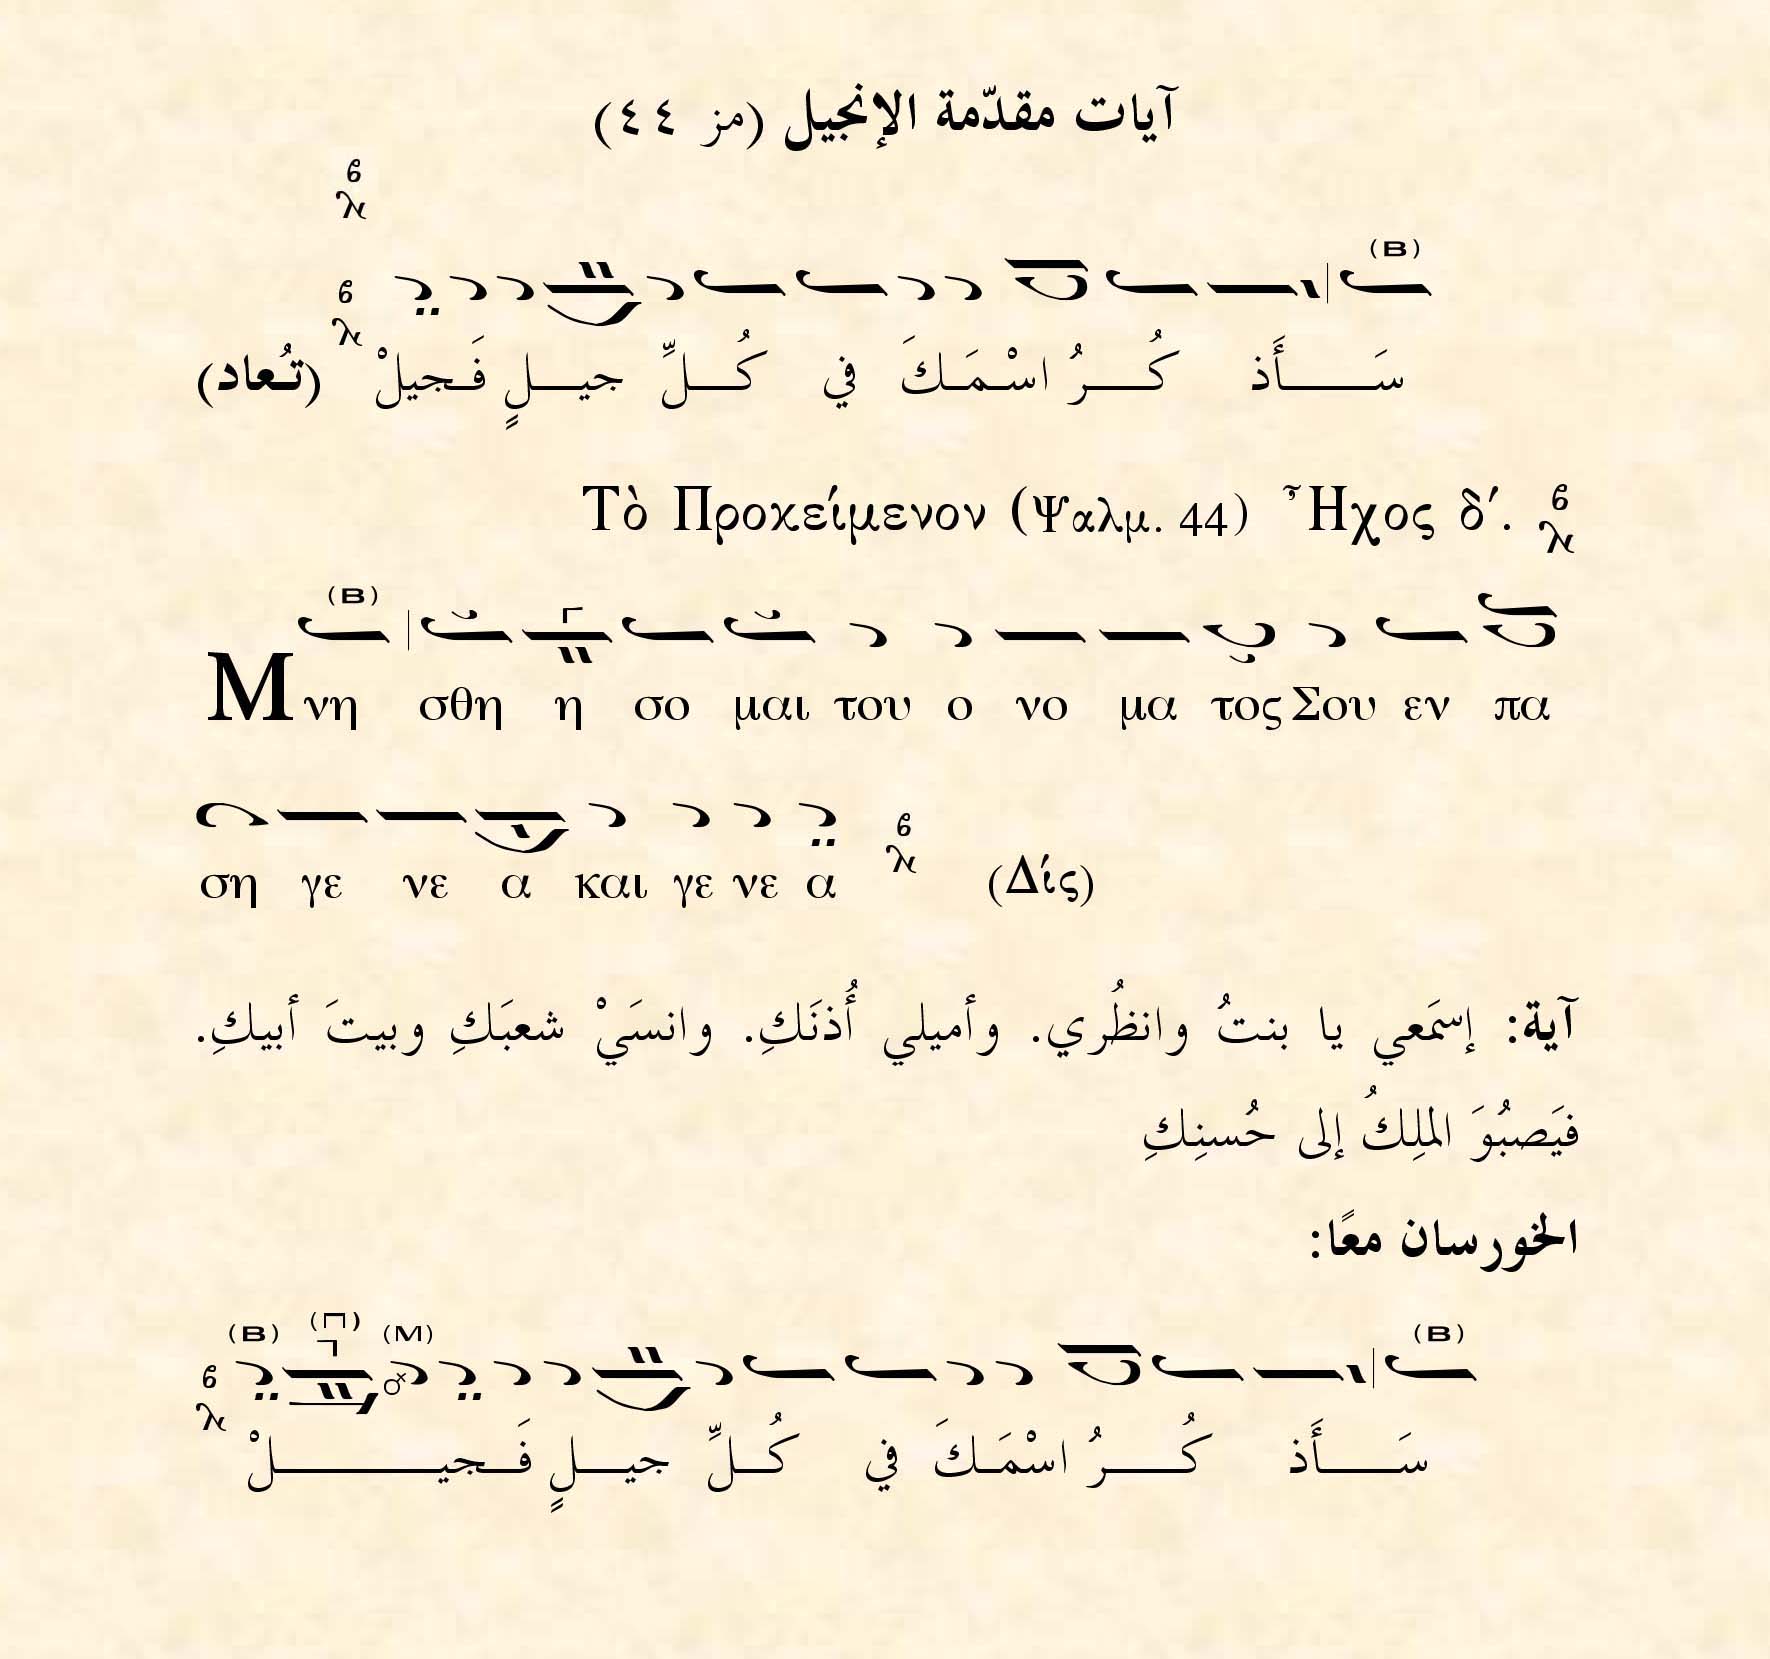 آيات مقدّمة الإنجيل (مز ٤٤)
(B)
سَـــأَذ كُـــرُ اسْـمَـكَ في كُـــلِّ جيـــلٍ فَـجيلْ (تُـعاد)
Τὸ Προκείμενον (Ψαλμ. 44) Ἦχος δ΄.
(B)
Μνη σθη η σο μαι του ο νο μα τος Σου εν πα
ση γε νε α και γε νε α (Δίς)
آية: إسمَعي يا بنتُ وانظُري. وأميلي أُذنَكِ. وانسَيْ شعبَكِ وبيتَ أبيكِ.
فيَصبُوَ الملِكُ إلى حُسنِكِ
الخورسان معًا:
(B) (M) (Π) (B)
سَـــأَذ كُـــرُ اسْـمَـكَ في كُـــلِّ جيـــلٍ فَـجيـــــلْ